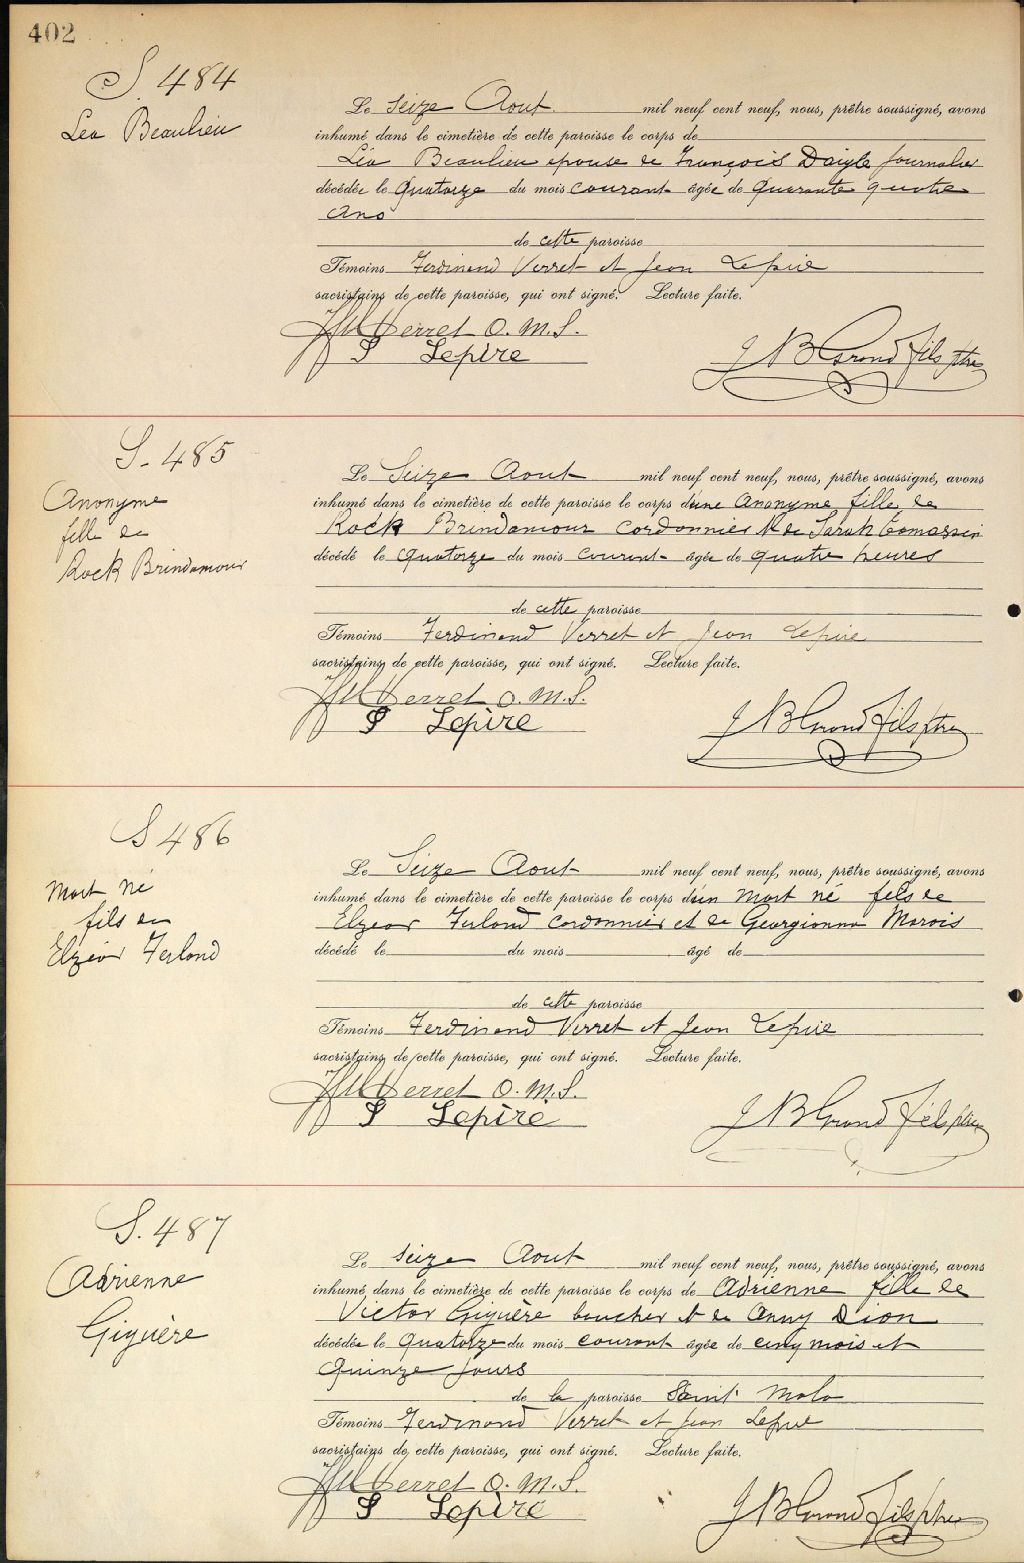 402
S. 484
Léa Beaulieu
Le Seize Aout mil neuf cent neuf, nous, prêtre soussigné, avons
inhumé dans le cimetière de cette paroisse le corps de
Léa Beaulieu epouse de François Daigle Journalier
décédée le Quatorze du mois courant âgée de Quarante quatre
Ans
de cette paroisse
Témoins Ferdinand Verret et Jean Lepire
sacristains de cette paroisse, qui ont signé. Lecture faite.
Verret O. M. S.
Lepire
J B Grond fils ptre
S. 485
Anonyme
fille de
Rock Brindamour
Le Seize Aout mil neuf cent neuf, nous, prêtre soussigné, avons
inhumé dans le cimetière de cette paroisse le corps d'une Anonyme fille de
Rock Brindamour Cordonnier & de Sarah Tomassin
décédé le Quatorze du mois courant âgée de quatre heures
de cette paroisse
Témoins Ferdinand Verret et Jean Lepire
sacristains de cette paroisse, qui ont signé. Lecture faite.
Verret O. M. S.
Lepire
J B Grond fils ptre
S 486
Mort né
fils de
Elzéar Ferland
Le Seize Aout mil neuf cent neuf, nous, prêtre soussigné, avons
inhumé dans le cimetière de cette paroisse le corps d'un Mort né fils de
Elzear Ferland cordonnier et de Georgianna Marois
décédé le du mois âgé de
de cette paroisse
Témoins Ferdinand Verret et Jean Lepire
sacristains de cette paroisse, qui ont signé. Lecture faite.
Verret O. M. S.
Lepire
J B Grond fils ptre
S. 487
Adrienne
Giguère
Le Seize Aout mil neuf cent neuf, nous, prêtre soussigné, avons
inhumé dans le cimetière de cette paroisse le corps de Adrienne fille de
Victor Giguère boucher & de Anny Dion
décédée le Quatorze du mois courant âgée de cinq mois et
Quinze jours
de la paroisse Saint Malo
Témoins Ferdinand Verret et Jean Lepire
sacristains de cette paroisse, qui ont signé. Lecture faite.
Verret O. M. S.
Lepire
J B Grond fils ptre